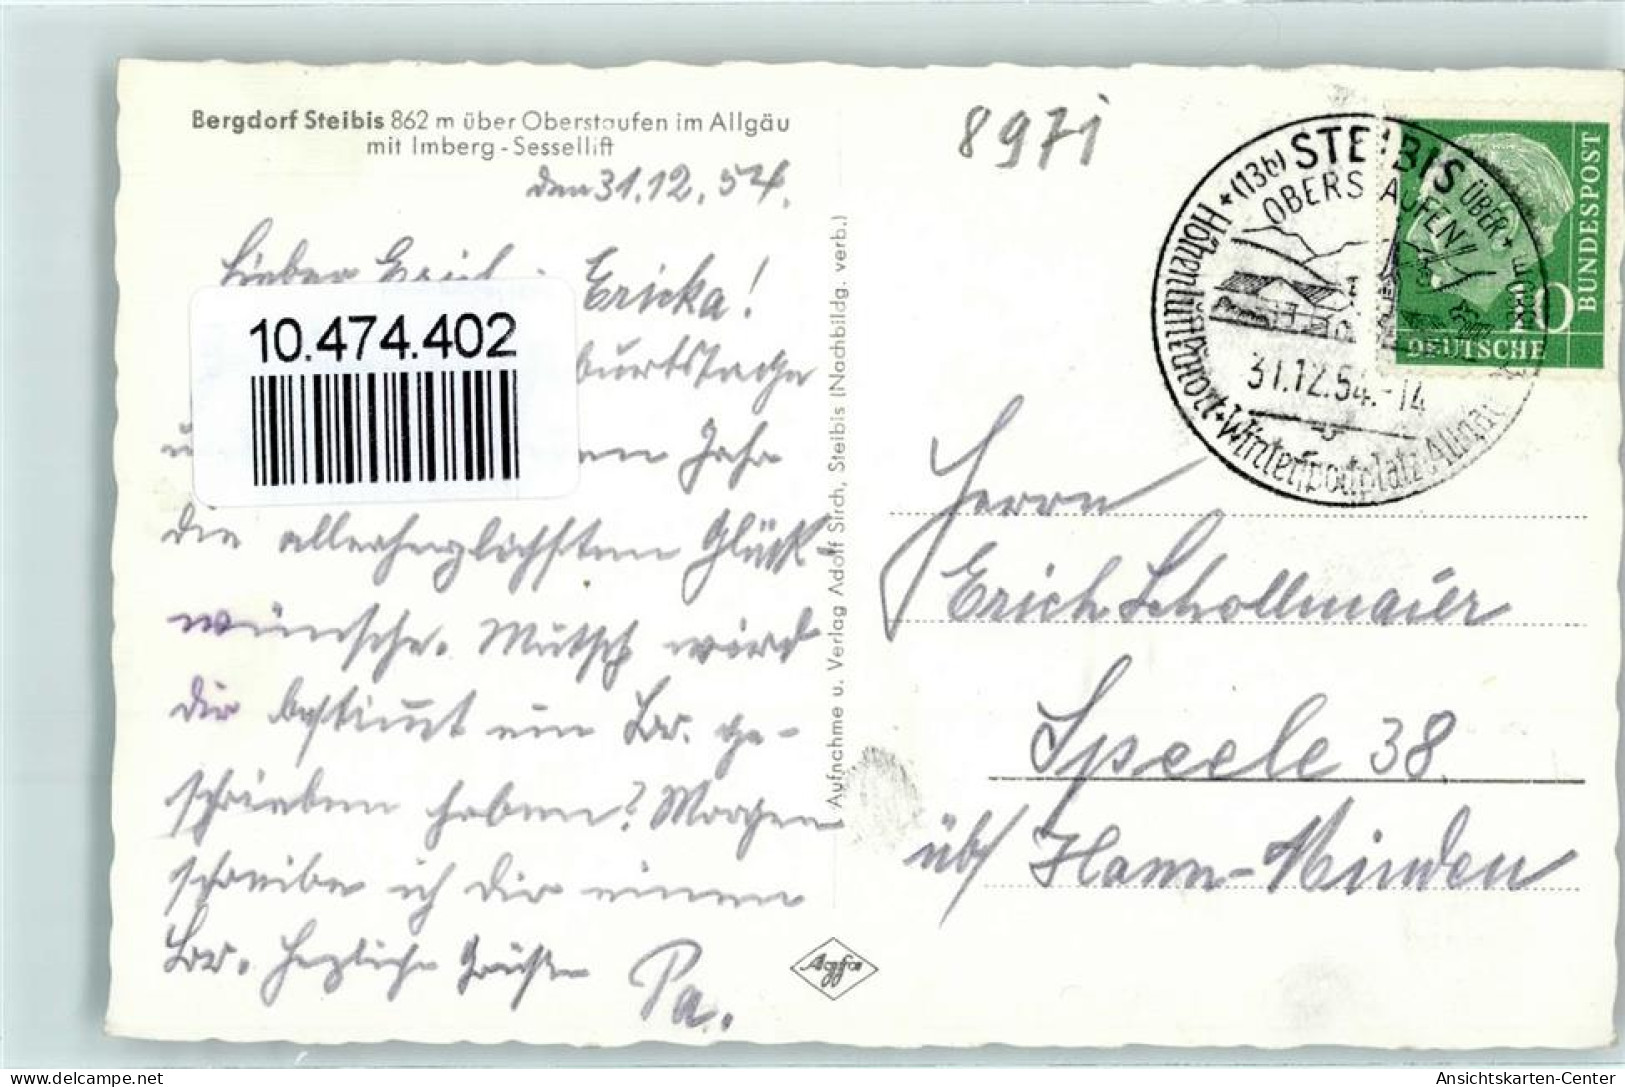 Bergdorf Steibis 862 m über Oberstaufen im Allgäu
mit Imberg-Sessellift
den 31.12.54.
Lieber Erich Ericka!
10.474.402
burtstage
en Jahr
die allerherzlichsten Glück-
wünsche. Mutsch wird
dir bestimmt ein Br. ge-
schrieben haben? Morgen
schreibe ich dir einen
Br. Herzliche Grüße Pa.
Aufnahme u. Verlag Adolf Sirch, Steibis (Nachbildg. verb.)
Agfa
8971
* (13b) STEIBIS ÜBER *
OBERSTAUFEN
31.12.54.-14
Höhenluftkurort + Wintersportplatz Allgäu
BUNDESPOST
10
DEUTSCHE
Herrn
Erich Schollmaier
Speele 38
üb/ Hann-Minden
delcampe.net
Ansichtskarten-Center